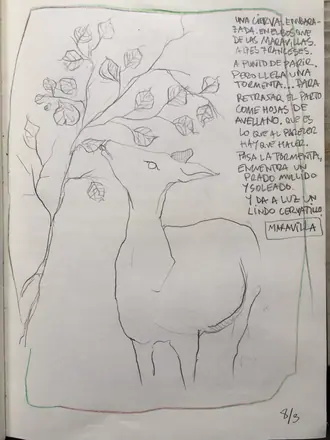 UNA CIERVA EMBARA-
ZADA. EN EL BOSQUE
DE LAS MARAVILLAS.
A PUNTO DE PARIR,
PERO LLEGA UNA
TORMENTA... PARA
RETRASAR EL PARTO
COME HOJAS DE
AVELLANO, QUE ES
LO QUE AL PARECER
HAY QUE HACER.
PASA LA TORMENTA,
ENCUENTRA UN
PRADO MULLIDO
Y SOLEADO.
Y DA A LUZ UN
LINDO CERVATILLO
MARAVILLA
8/3